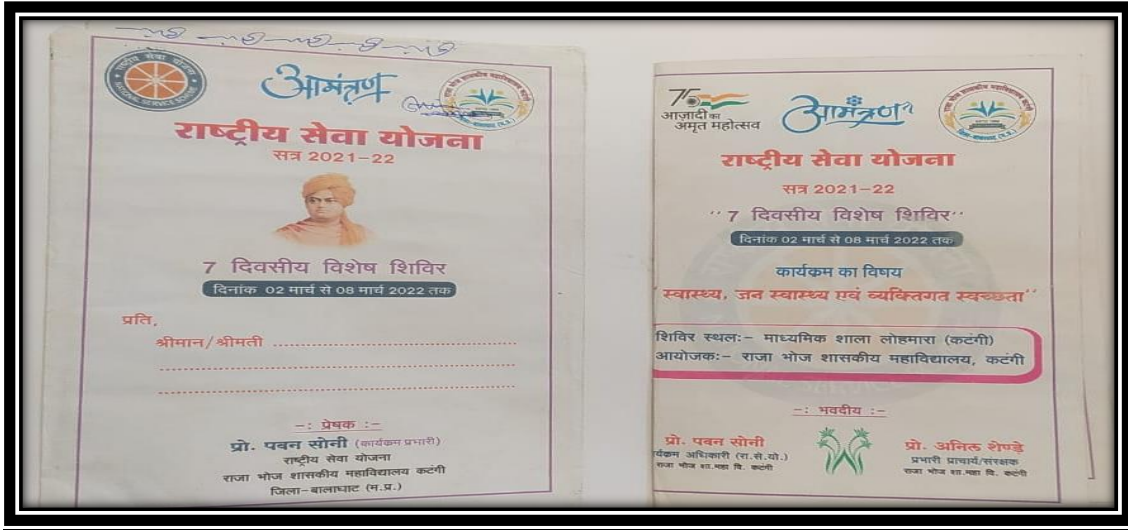 राष्ट्रीय सेवा योजना
NATIONAL SERVICE SCHEME
आमंत्रण
राष्ट्रीय सेवा योजना
सत्र 2021-22
7 दिवसीय विशेष शिविर
दिनांक 02 मार्च से 08 मार्च 2022 तक
प्रति,
श्रीमान/श्रीमती ........................................
........................................
........................................
-: प्रेषक :-
प्रो. पबन सोनी (कार्यकम प्रभारी)
राष्ट्रीय सेवा योजना
राजा भोज शासकीय महाविद्यालय कटंगी
जिला-बालाघाट (म.प्र.)
75
आज़ादी का
अमृत महोत्सव
आमंत्रण
राष्ट्रीय सेवा योजना
सत्र 2021-22
"7 दिवसीय विशेष शिविर"
दिनांक 02 मार्च से 08 मार्च 2022 तक
कार्यकम का विषय
"स्वास्थ्य, जन स्वास्थ्य एवं व्यक्तिगत स्वच्छता"
शिविर स्थलः- माध्यमिक शाला लोहमारा (कटंगी)
आयोजकः- राजा भोज शासकीय महाविद्यालय, कटंगी
-: भवदीय :-
प्रो. पबन सोनी
र्यकम अधिकारी (रा.से.यो.)
राजा भोज शा.महा वि. कटंगी
प्रो. अनिल शेण्डे
प्रभारी प्राचार्य/संरक्षक
राजा भोज शा.महा वि. कटंगी